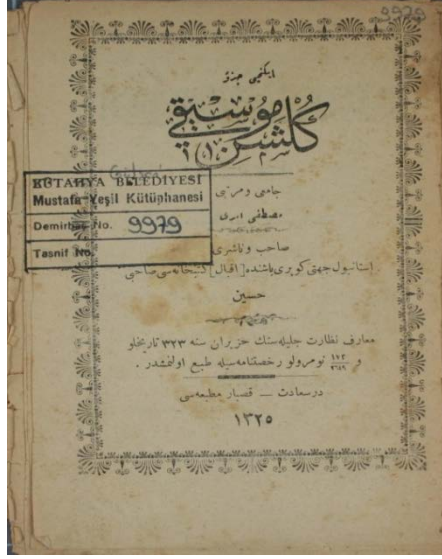 9979
ایكنجی جزؤ
گلشن موسیقی
جامعی و مرتبی
KÜTAHYA BELEDİYESİ
Mustafa Yeşil Kütüphanesi
Demirbaş No. 9979
Tasnif No.
مصطفی
صاحب و ناشری
استانبول جهتی كوپری باشنده [اقبال] كتبخانه‌سی صاحبی
حسین
معارف نظارت جلیله‌سنك حزیران سنه ٣٢٣ تاریخلو
و نومرولو رخصتنامه‌سیله طبع اولنمشدر .
درسعادت — قصبار مطبعه‌سی
١٣٢٥